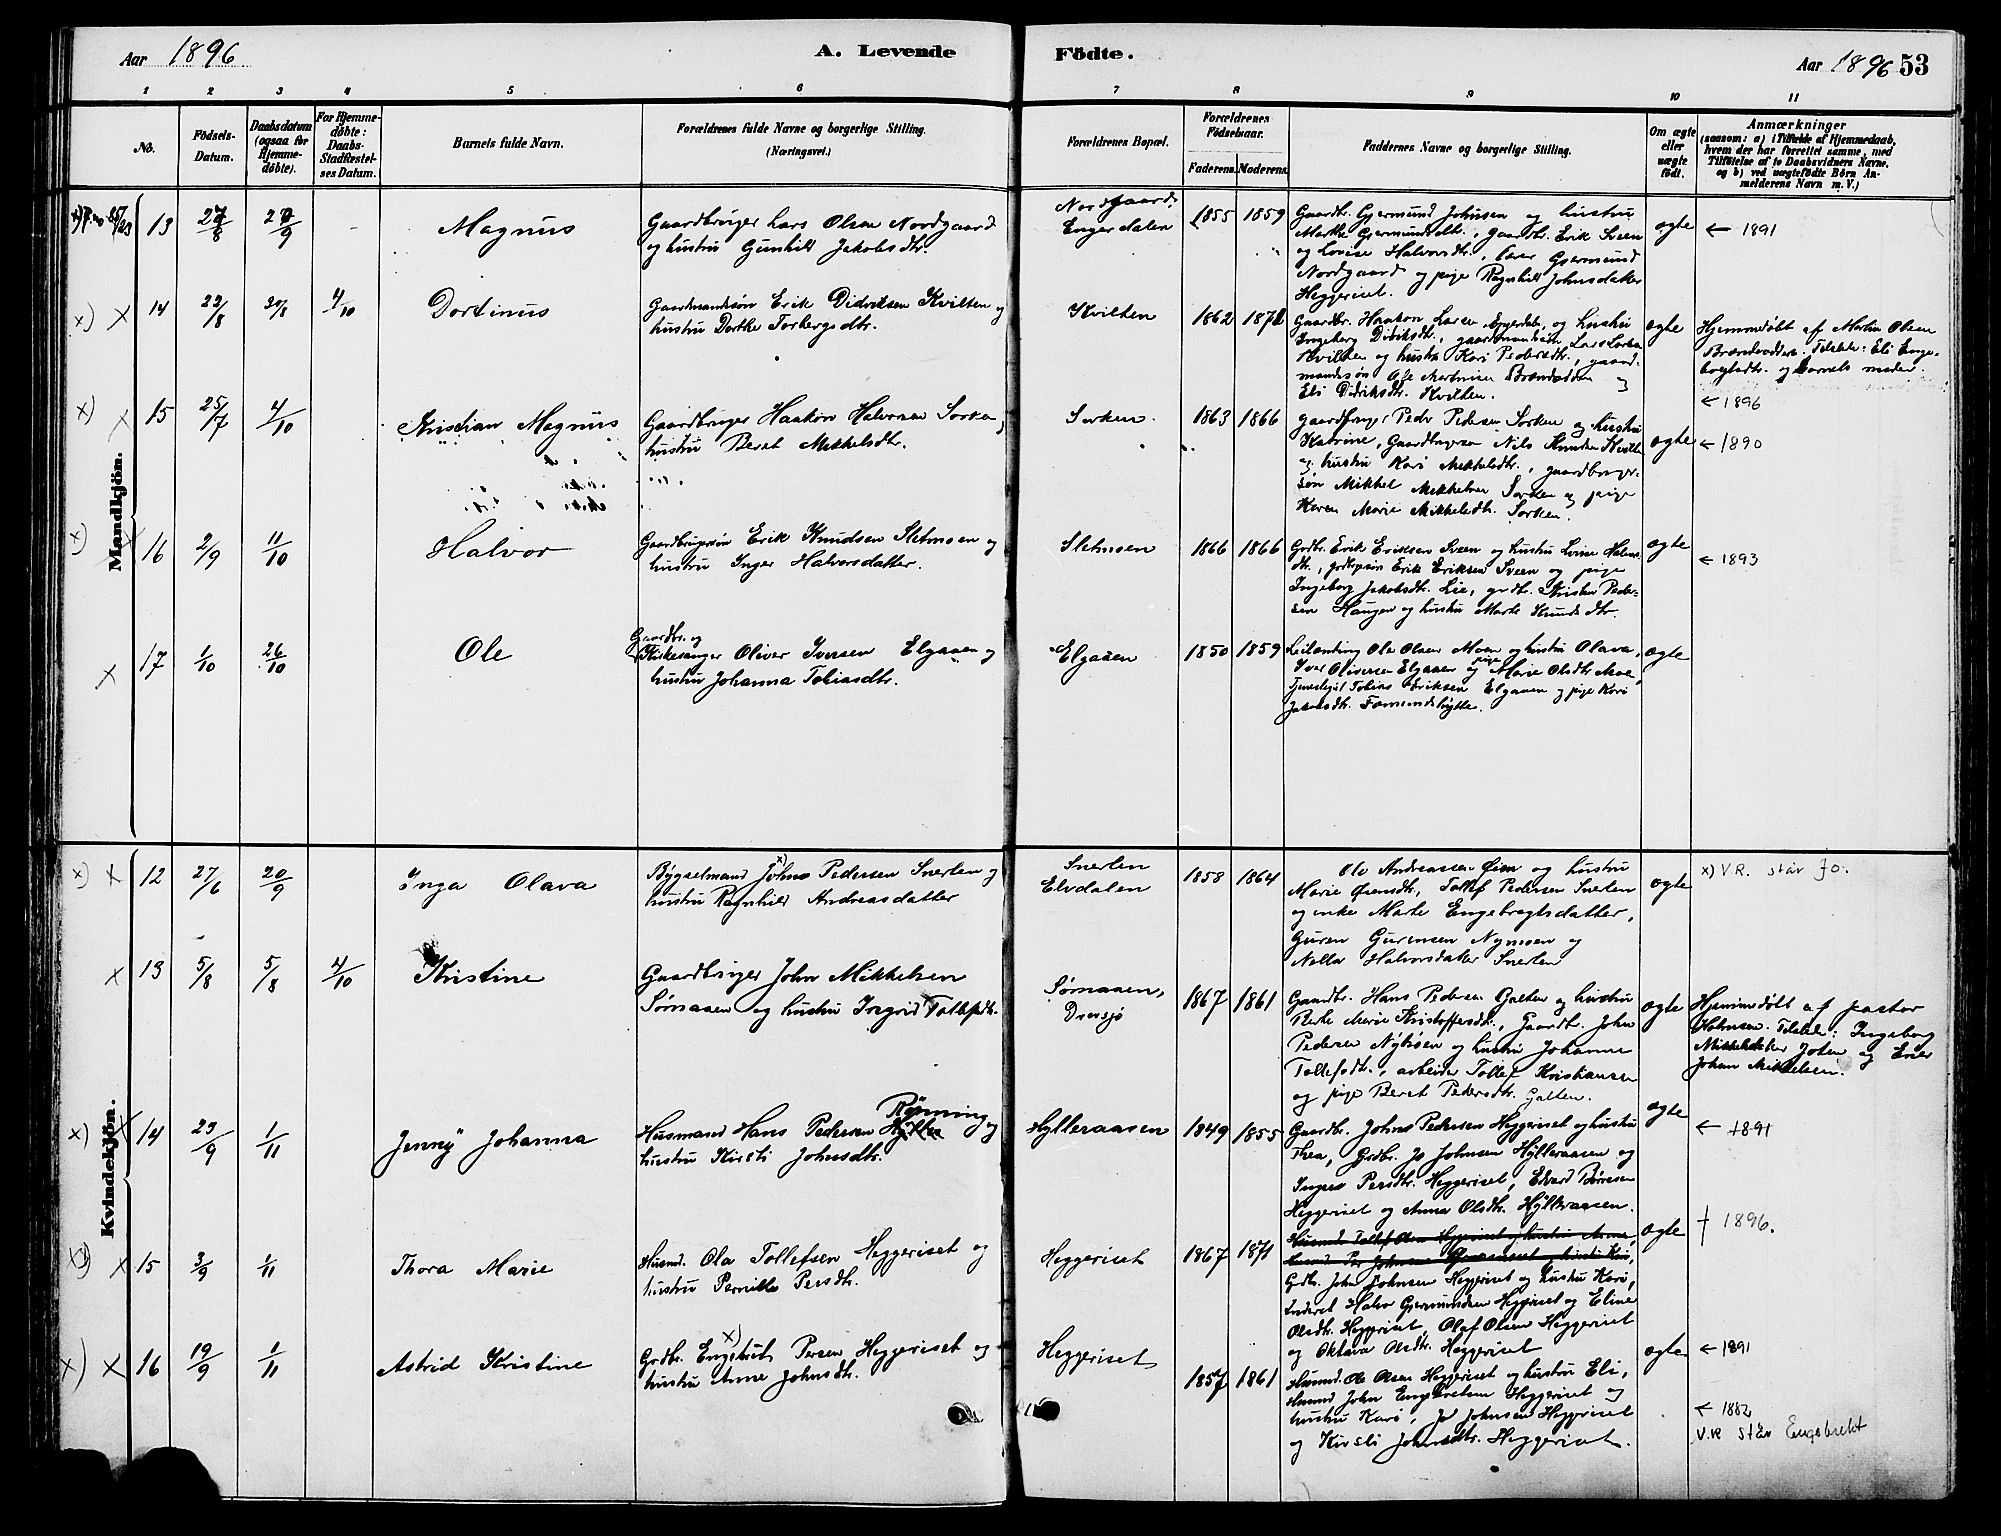 Aar 1896
A. Levende Födte.
Aar 1896 53
1 2 3 4 5 6 7 8 9 10 11
No.
Födsels-Datum.
Daabsdatum (ogsaa for Hjemme-döbte).
For Hjemme-döbte: Daabs-Stadfæstel-ses Datum.
Barnets fulde Navn.
Forældrenes fulde Navne og borgerlige Stilling.
(Næringsvei.)
Forældrenes Bopæl.
Forældrenes Födselsaar.
Faderens. Moderens.
Faddernes Navne og borgerlige Stilling.
Om ægte eller uægte födt.
Anmærkninger
(saasom: a) i Tilfælde af Hjemmedaab,
hvem der har forrettet samme, med
Tilföielse af to Daabsvidners Navne,
og b) ved uægtefödte Börn An-
melderens Navn m. V.)
Mandkjön.
13 27/8 20/9 - Magnus
Gaardbruger Lars Olsen Nordgaard
og hustru Gunhild Jakobsdtr.
Nordgaard,
Engerdalen
1855 1859
Gaardbr. Gjermund Johnsen og hustru
Marthe Gjermundsdtr., gaardbr. Erik Sveen
og Lovise Halvorsdtr., Lars Gjermund
Nordgaard og pige Ragnhild Johnsdatter
Heggeriset.
ægte
← 1891
x) x 14 22/8 30/8 4/10 Dortinus
Gaardmandssøn Erik Didriksen Kvilten og
hustru Dorthe Torbergsdtr.
Kvilten
1862 1872
Gaardbr. Haakon Larsen Eggerdalen og hustru
Ingeborg Didriksdtr., gaardmandssøn Lars Larsen
Kvilten og hustru Kari Pedersdtr., gaard-
mandssøn Ole Martinsen Brændvolden og
Eli Didriksdtr. Kvilten.
ægte
Hjemmedøbt af Martin Olsen
Brændvolden. Tilstede: Eli Enge-
bregtsdtr. og barnets moder.
← 1896
x) x 15 25/7 4/10 Kristian Magnus
Gaardbruger Haakon Halvorsen Sorken,
hustru Beret Mikkelsdtr.
Sorken.
1863 1866
Gaardbruger Peder Pedersen Sorken og hustru
Katrine, Gaardbruger Nils Knudsen Kvilten
og hustru Kari Mikkelsdtr., gaardbruger-
søn Mikkel Mikkelsen Sorken og pige
Karen Marie Mikkelsdtr. Sorken.
ægte
← 1890
x) x 16 2/9 11/10 Halvor
Gaardbrugersøn Erik Knudsen Sletmoen og
hustru Inger Halvorsdatter.
Sletmoen
1866 1866
Grdbr. Erik Eriksen Sveen og hustru Lovise Halvors-
dtr., grdbrsøn Erik Eriksen Sveen og pige
Ingeborg Jakobsdtr. Lie, grdbr. Kristen Peder-
sen Haugen og hustru Marte Knudsdtr.
ægte
← 1893
x 17 1/10 26/10 Ole
Gaardbr. og
Kirkesanger Oliver Iversen Elgaaen og
hustru Johanna Tobiasdtr.
Elgaaen
1850 1859
Leilænding Ole Olsen Moen og hustru Olava,
Iver Oliversen Elgaaen og pige Marie Olsdtr. Moe,
Tobias Eriksen Elgaaen og pige Kari
Jakobsdtr. Fæmundshytte.
ægte
Kvindekjön.
x) x 12 27/6 20/9 Inga Olava
Bygselmand x) Johns Pedersen Snerten og
hustru Ragnhild Andreasdatter
Snerten
Elvdalen
1858 1864
Ole Andreassen Øien og hustru
Marie Øiensdtr., Tollef Pedersen Snerten
og enke Marte Engebregtsdatter,
Guren Gurensen Nymoen og
Nella Halvorsdatter Snerten
ægte
x) V.R. står Jo.
x 13 5/8 5/8 4/10 Kristine
Gaardbruger John Mikkelsen
Sømaaen og hustru Ingrid Tollefsdtr.
Sømaaen,
Drevsjø
1867 1861
Gaardbr. Hans Pedersen Galten og hustru
Berthe Marie Kristoffersdtr., Gaardbr. John
Pedersen Nyhsen og hustru Johanne
Tollefsdtr., arbeider Tollef Kristiansen
og pige Beret Pedersdtr. Galten.
ægte
Hjemmedøbt af pastor
Holmsen. Tilstede: Ingeborg
Mikkelsdatter Joten og Ener
Johan Mikkelsen.
x) x 14 23/9 1/11 Jenny Johanna
Husmand Hans Pedersen Rønning og
hustru Kirsti Johnsdtr.
Hylleraasen
1849 1855
Gaardbr. Johns Pedersen Heggeriset og hustru
Thea, Grdbr. Jo Johnsen Hylleraasen og
Inger Persdtr. Heggeriset, Edvard Børresen
Heggeriset og Anna Olsdtr. Hylleraasen.
ægte
← 1891
x) x 15 3/9 1/11 Thora Marie
Husmd. Ola Tollefsen Heggeriset og
hustru Pernille Persdtr.
Heggeriset
1867 1871
Husmd. Tollef Olsen Heggeriset og hustru Anne,
Grdbr. John Johnsen Heggeriset og hustru Kari,
Halvor Gjermundsen Heggeriset og Eline
Olsdtr. Heggeriset, Olaf Olsen Heggeriset
og Oktava Olsdtr. Heggeriset
ægte
† 1896.
x) x 16 19/9 1/11 Astrid Kristine
Grdbr. Engebret x) Persen Heggeriset og
hustru Anne Johnsdtr.
Heggeriset
1857 1861
Husmd. Ole Olsen Heggeriset og hustru Eli,
Husmd. John Engebretsen Heggeriset og
hustru Kari, Jo Johnsen Heggeriset
og Kirsti Johnsdtr. Heggeriset.
ægte.
← 1891
← 1882
V.R. står Engebrekt